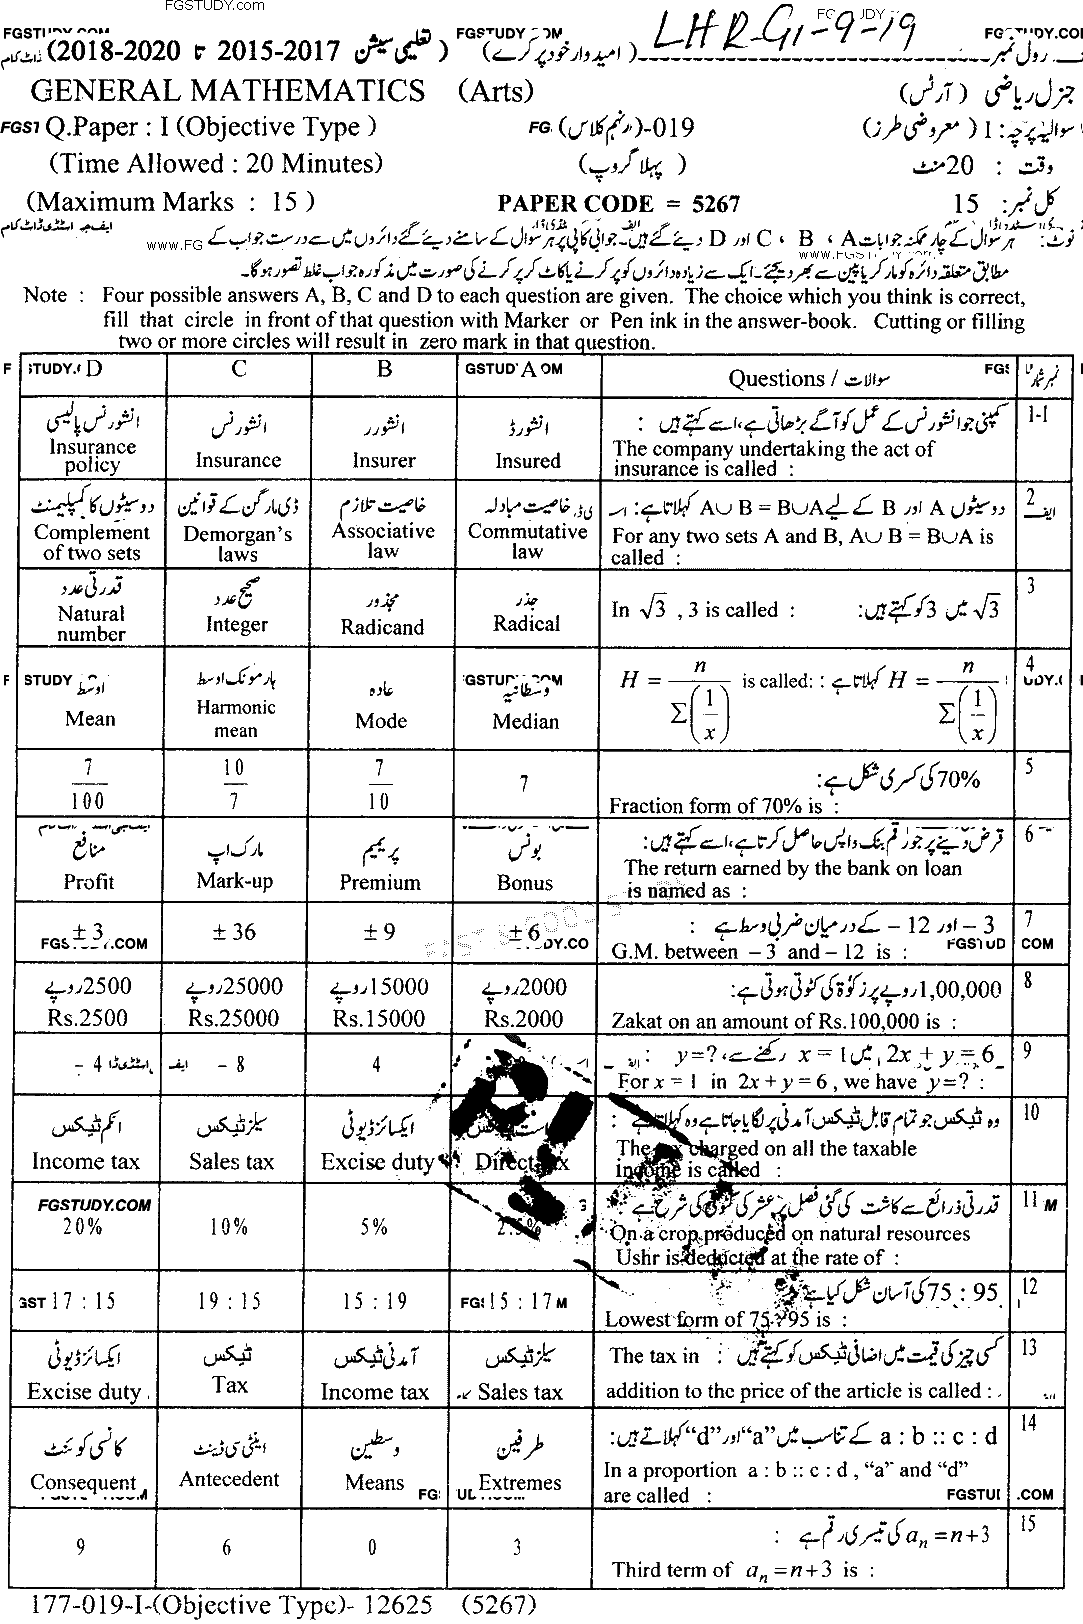 FGSTUDY.com
LHR-G1-9-19
(تعلیمی سیشن 2015-2017 تا 2018-2020) (امیدوار خود پر کرے) رول نمبر
GENERAL MATHEMATICS (Arts) جنرل ریاضی (آرٹس)
Q.Paper : I (Objective Type ) 019-(نہم کلاس) سوالیہ پرچہ : I (معروضی طرز)
(Time Allowed : 20 Minutes) (پہلا گروپ) وقت : 20 منٹ
(Maximum Marks : 15 ) PAPER CODE = 5267 کل نمبر: 15
نوٹ: ہر سوال کے چار ممکنہ جوابات A، B، C اور D دیئے گئے ہیں۔ جوابی کاپی پر ہر سوال کے سامنے دیئے گئے دائروں میں سے درست جواب کے
مطابق متعلقہ دائرہ کو مارکر یا پین سے بھر دیجئے۔ ایک سے زیادہ دائروں کو پر کرنے یا کاٹ کر پر کرنے کی صورت میں مذکورہ جواب غلط تصور ہوگا۔
Note : Four possible answers A, B, C and D to each question are given. The choice which you think is correct,
fill that circle in front of that question with Marker or Pen ink in the answer-book. Cutting or filling
two or more circles will result in zero mark in that question.
D C B A Questions / سوالات نمبر شمار
انشورنس پالیسی انشورنس انشورر انشورڈ کمپنی جو انشورنس کے عمل کو آگے بڑھاتی ہے، اسے کہتے ہیں : 1-1
Insurance policy Insurance Insurer Insured The company undertaking the act of
insurance is called :
دو سیٹوں کا کمپلیمنٹ ڈی مارگن کے قوانین خاصیت تلازم خاصیت مبادلہ دو سیٹوں A اور B کے لیے A∪B = B∪A کہلاتا ہے: 2
Complement of two sets Demorgan's laws Associative law Commutative law For any two sets A and B, A∪B = B∪A is
called :
قدرتی عدد صحیح عدد مجذور جذر √3 میں 3 کو کہتے ہیں: 3
Natural number Integer Radicand Radical In √3 , 3 is called :
اوسط ہارمونک اوسط عادہ وسطانیہ H = n / Σ(1/x) کہلاتا ہے : 4
Mean Harmonic mean Mode Median H = n / Σ(1/x) is called:
7/100 10/7 7/10 7 70% کی کسری شکل ہے: 5
Fraction form of 70% is :
منافع مارک اپ پریمیم بونس قرض دینے پر جو رقم بنک واپس حاصل کرتا ہے، اسے کہتے ہیں: 6
Profit Mark-up Premium Bonus The return earned by the bank on loan
is named as :
± 3 ± 36 ± 9 ± 6 – 3 اور – 12 کے درمیان ضربی وسط ہے : 7
G.M. between – 3 and – 12 is :
2500روپے 25000روپے 15000روپے 2000روپے 1,00,000 روپے پر زکوٰۃ کی کٹوتی ہوتی ہے: 8
Rs.2500 Rs.25000 Rs.15000 Rs.2000 Zakat on an amount of Rs.100,000 is :
– 4 – 8 4 2x + y = 6 میں x = 1 رکھنے سے، y=? : 9
For x = 1 in 2x + y = 6 , we have y=? :
انکم ٹیکس سیلز ٹیکس ایکسائز ڈیوٹی وہ ٹیکس جو تمام قابل ٹیکس آمدنی پر لگایا جاتا ہے وہ کہلاتا ہے : 10
Income tax Sales tax Excise duty Direct tax The tax charged on all the taxable
income is called :
20% 10% 5% قدرتی ذرائع سے کاشت کی گئی فصل پر عشر کی کٹوتی کی شرح ہے : 11
On a crop produced on natural resources
Ushr is deducted at the rate of :
17 : 15 19 : 15 15 : 19 15 : 17 75 : 95 کی آسان شکل کیا ہے: 12
Lowest form of 75 : 95 is :
ایکسائز ڈیوٹی ٹیکس آمدنی ٹیکس سیلز ٹیکس کسی چیز کی قیمت میں اضافی ٹیکس کو کہتے ہیں : 13
Excise duty Tax Income tax Sales tax The tax in
addition to the price of the article is called :
کانسی کوئنٹ اینٹی سی ڈینٹ وسطین طرفین a : b :: c : d کے تناسب میں "a" اور "d" کہلاتے ہیں: 14
Consequent Antecedent Means Extremes In a proportion a : b :: c : d , "a" and "d"
are called :
9 6 0 3 aₙ = n+3 کی تیسری رقم ہے : 15
Third term of aₙ = n+3 is :
177-019-I-(Objective Type)- 12625 (5267)